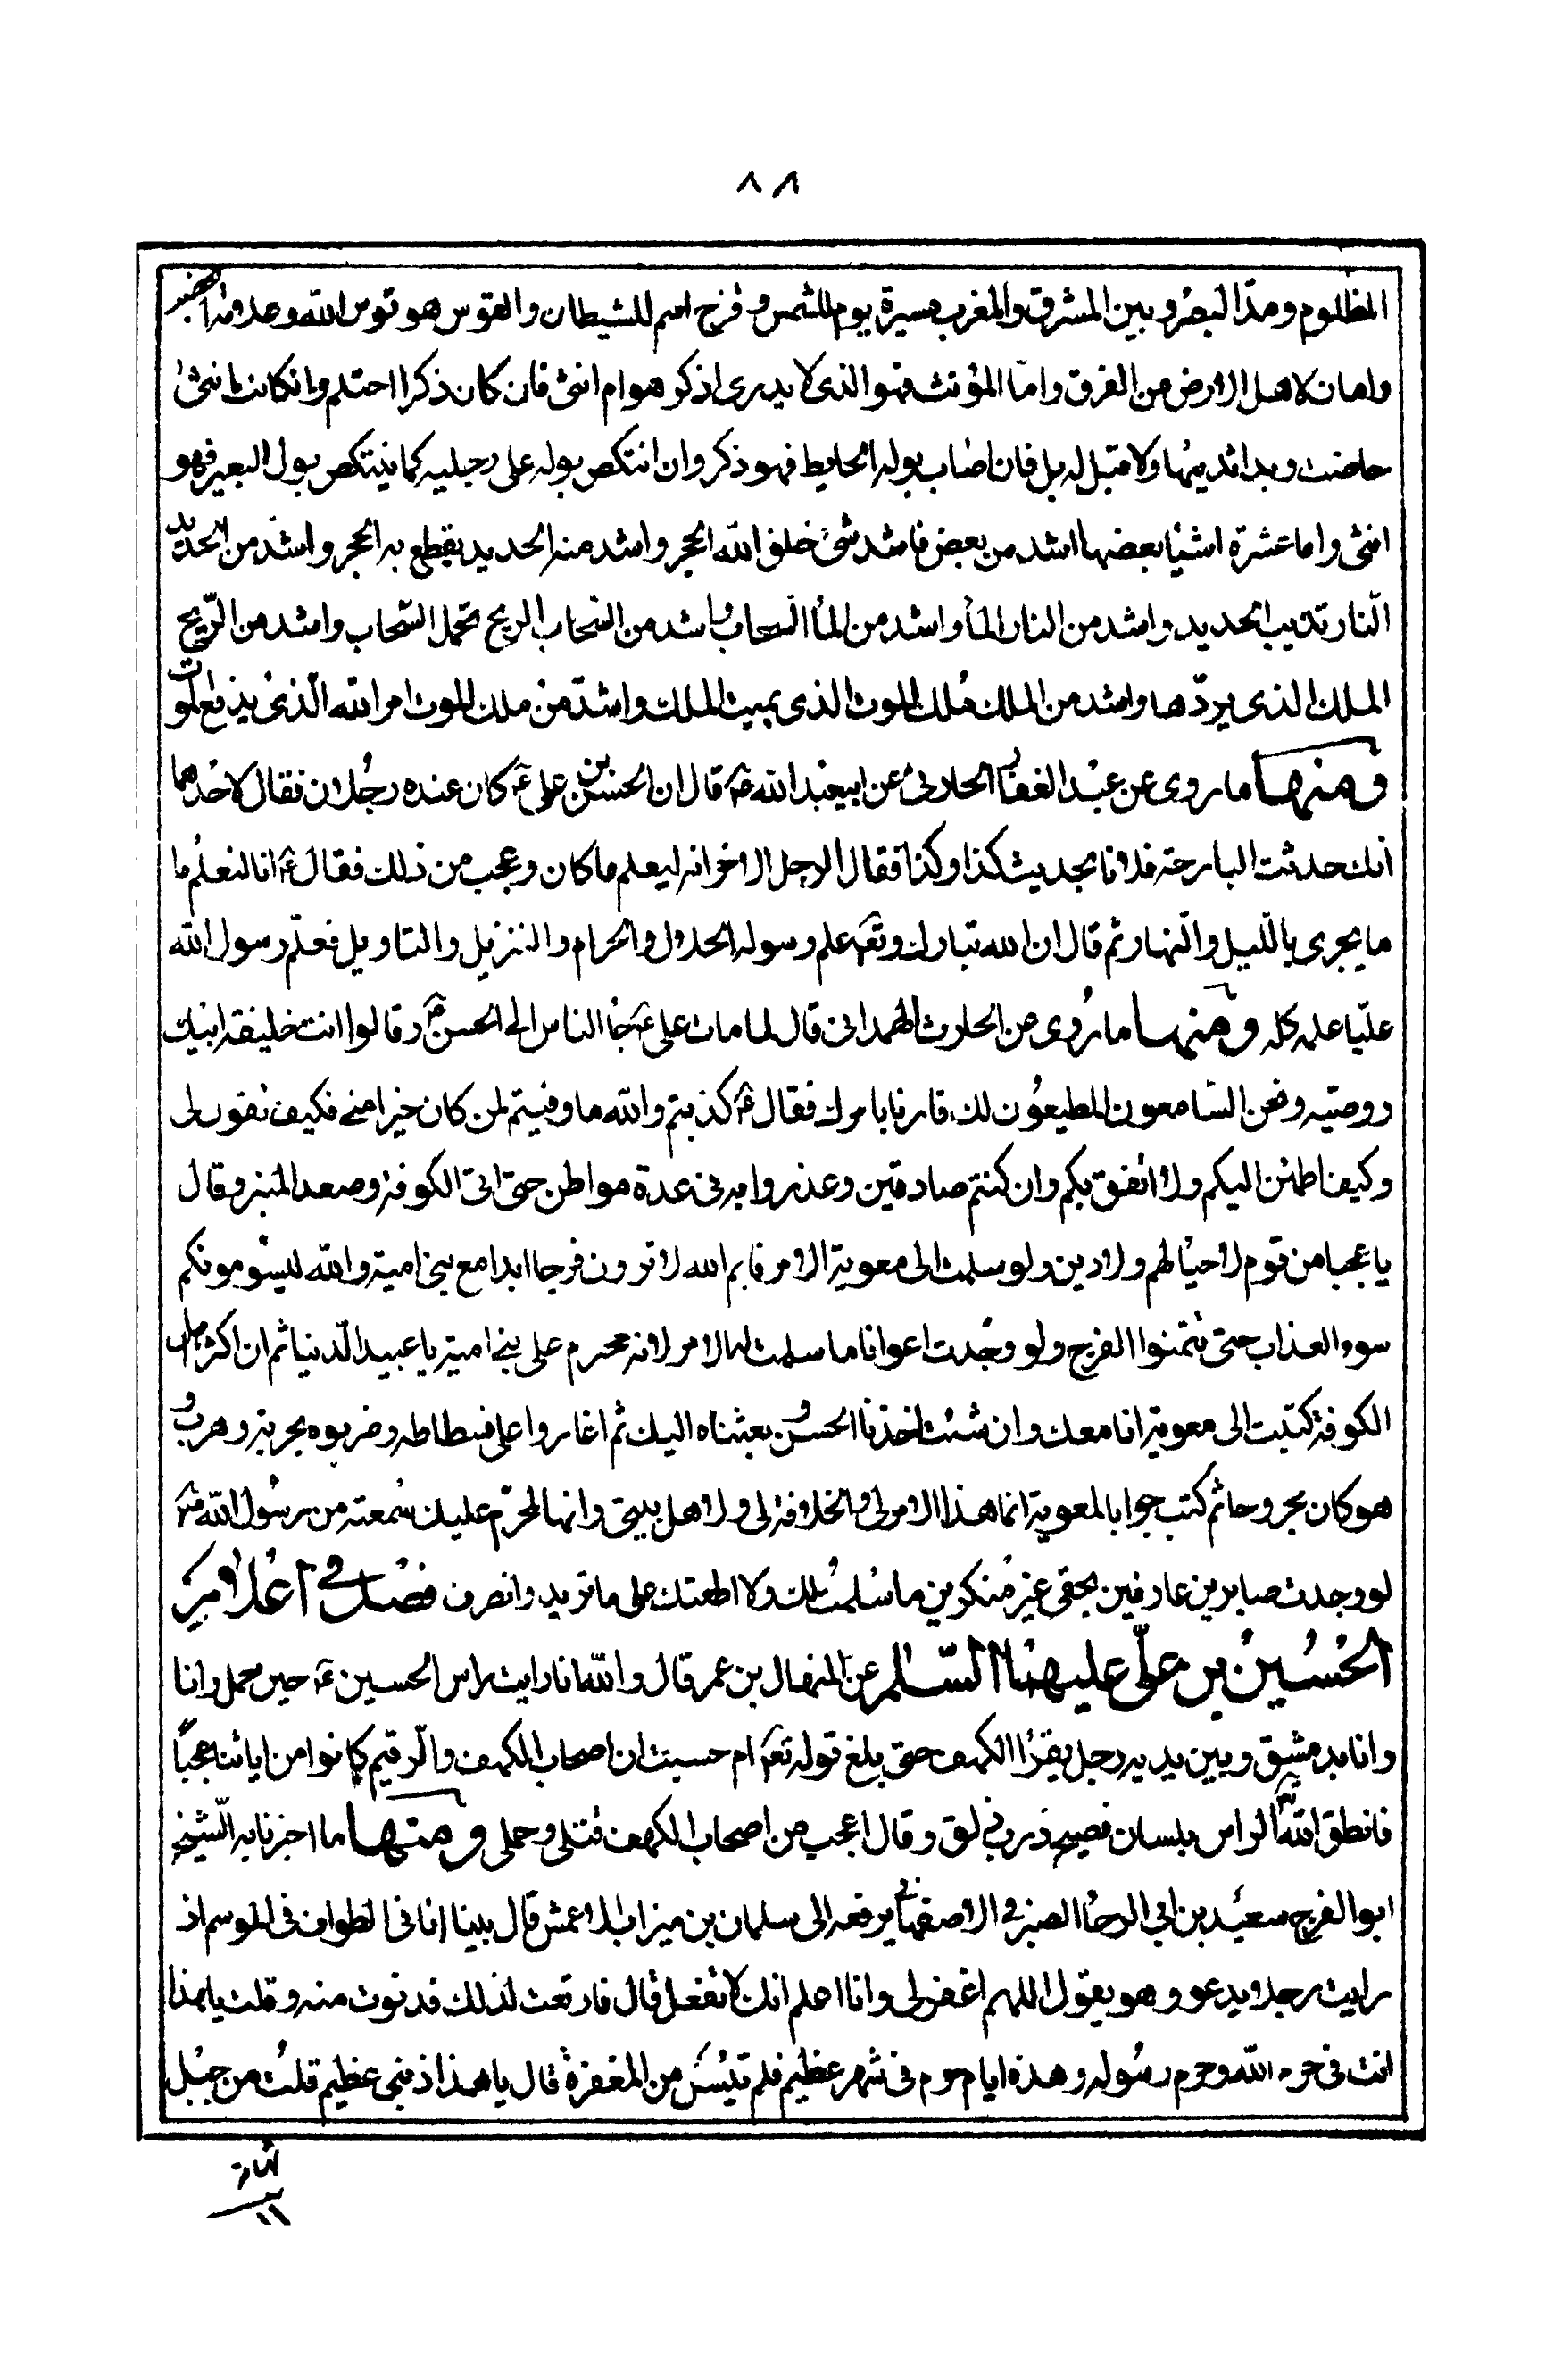 ٨٨
المظلوم ومدّ البصر وبين المشرق والمغرب مسيرة يوم للشمس وقزح اسم للشيطان والقوس هو قوس الله وعلامة الخصب
وامان لاهل الارض من الغرق وامّا المؤنث فهو الذى لا يدرى اذكر هو ام انثى فان كان ذكرا احتلم وان كانت انثى
حاضت وبدا ثديها ولا قيل له بل فان اصاب بوله الحايط فهو ذكر وان انتكص بوله على رجليه كما ينتكص بول البعير فهو
انثى واما عشرة اشيا بعضها اشد من بعض فاشد شئ خلق الله الحجر واشد منه الحديد يقطع به الحجر واشد من الحديد
النار تذيب الحديد واشد من النار الماء واشد من الماء السحاب واشد من السحاب الريح تحمل السحاب واشد من الريح
الملك الذى يردّها واشد من الملك ملك الموت الذى يميت الملك واشدّ من ملك الموت امر الله الّذى يدفع الموت
ومنها ما روى عن عبد الغفار الحلازى عن ابيعبد الله ع قال ان الحسن بن على ع كان عنده رجلان فقال لاحدهما
انك حدثت البارحة فلانا بحديث كذا وكذا فقال الرجل الاخر انه ليعلم ما كان وعجب من ذلك فقال ع انا لنعلم ما
ما يجرى بالليل والنهار ثم قال ان الله تبارك وتعـ علم رسوله الحلال والحرام والتنزيل والتاويل فعلّم رسول الله
عليّا علمه كله ومنها ما روى عن الحارث الهمدانى قال لما مات على ع جا الناس الى الحسن ع وقالوا انت خليفة ابيك
ووصيه ونحن السامعون المطيعون لك فامرنا بامرك فقال ع كذبتم والله ما وفيتم لمن كان خيرا منى فكيف تفون لى
وكيف اطمئن اليكم ولا اثق بكم وان كنتم صادقين وعذروا به فى عدة مواطن حتى اتى الكوفة وصعد المنبر وقال
يا عجبا من قوم لا حيا لهم ولا دين ولو سلمت الى معوية الامر فايم الله لا ترون فرجا ابدا مع بنى امية والله ليسومونكم
سوء العذاب حتى تتمنوا الفرج ولو وجدت اعوانا ما سلمت له الامر لانه محرم على بنى امية يا عبيد الدنيا ثم ان اكثر اهل
الكوفة كتبت الى معوية انا معك وان شئت اخذنا الحسن وبعثناه اليك ثم اغاروا على فسطاطه وضربوه بحربة وهرب و
هو كان مجروحا ثم كتب جوابا لمعوية انما هذا الامر لى والخلافة لى ولاهل بيتى وانها لمحرّم عليك سمعته من رسول الله ص
لو وجدت صابرين عارفين بحقى غير منكرين ما سلمت لك ولا اطعتك على ما تريد وانصرف فصل فى اعلام
الحسين بن علىّ عليهما السلام عن المنهال بن عمر قال والله انا رايت راس الحسين ع حين حمل وانا
وانا بدمشق وبين يديه رجل يقرا الكهف حتى بلغ قوله تعـ ام حسبت ان اصحاب الكهف والرقيم كانوا من اياتنا عجبا
فانطق الله الراس بلسان فصيح ذرب ذلق وقال اعجب من اصحاب الكهف قتلى وحملى ومنها ما اخبرنا به الشيخ
ابو الفرج سعيد بن ابى الرجا الصيرفى الاصفهانى يرفعه الى سلمان بن ميزاب الاعمش قال بينا انا فى الطواف فى الموسم اذ
رايت رجلا يدعو وهو يقول اللهم اغفر لى وانا اعلم انك لا تفعل قال فارتعت لذلك فدنوت منه وقلت يا هذا
انت فى حرم الله وحرم رسوله وهذه ايام حرم فى شهر عظيم فلم تيئس من المغفرة قال يا هذا ذنبى عظيم قلت من جبل